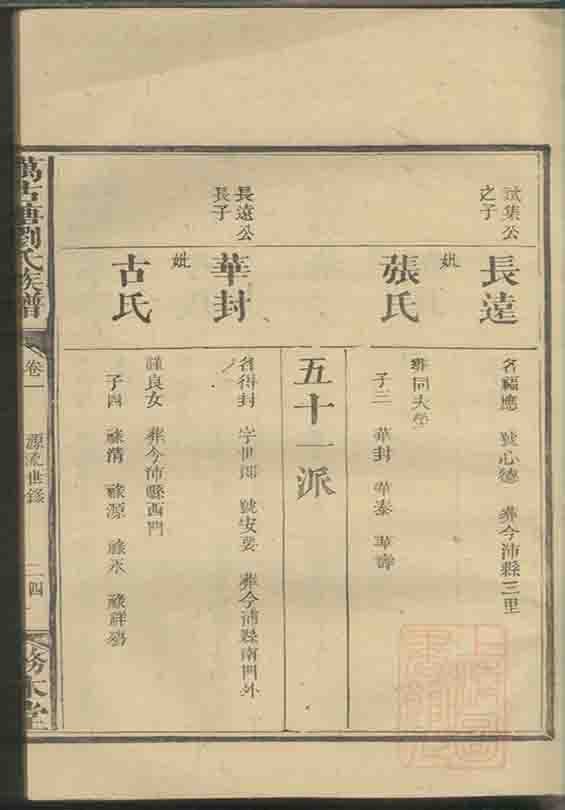 試集公
之子
長遠
妣
張氏
名福應 號心德 葬今沛縣三里
葬同夫塋
子三 華封 華泰 華壽
五十一派
長遠公
長子
華封
妣
古氏
名得封 字世郎 號安晏 葬今沛縣南門外
謹良女 葬今沛縣西門
子四 祿清 祿源 祿承 祿祥
萬古塘劉氏族譜
卷一
源流世錄
二四
務本堂